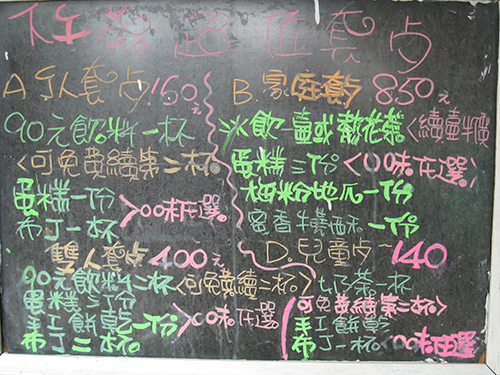 下午茶超值套点
A 个人套点 160元
90元飲料一杯
<可免費續第二杯>
蛋糕一份
布丁一杯
>口味任選
B. 家庭套点 850元
冰飲一壺或熱花茶<續壺半價>
蛋糕三份<口味任選>
梅粉地瓜一份
蜜香棒棒酥一份
雙人套点 400元
90元飲料二杯<可免費續一杯>
蛋糕二份
手工餅乾一份
布丁二杯
>口味任選
D. 兒童点~140
奶茶一杯
<可免費續第二杯>
手工餅乾
布丁一杯<口味任選